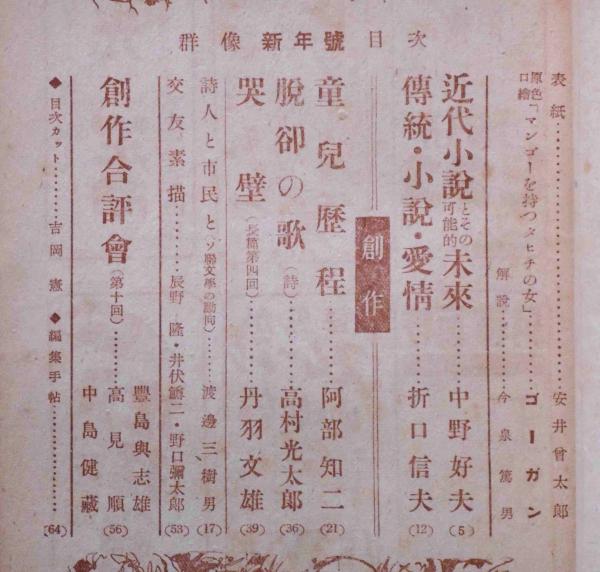 群像 新年號 目次
表紙…………安井曾太郎
原色口繪「マンゴーを持つタヒチの女」…ゴーガン
解說……今泉篤男
近代小說とその可能的未來…………中野好夫(5)
傳統・小說・愛情…………折口信夫(12)
創作
童兒歷程…………阿部知二(21)
脫卻の歌(詩)…………高村光太郎(36)
哭壁(長篇第四回)…………丹羽文雄(39)
詩人と市民と(ソ聯文學の動向)……渡邊三樹男(17)
交友素描……辰野隆・井伏鱒二・野口彌太郎(53)
創作合評會(第十回)………豐島與志雄
高見順(56)
中島健藏
◆目次カット………吉岡憲 ◆編集手帖…………(64)